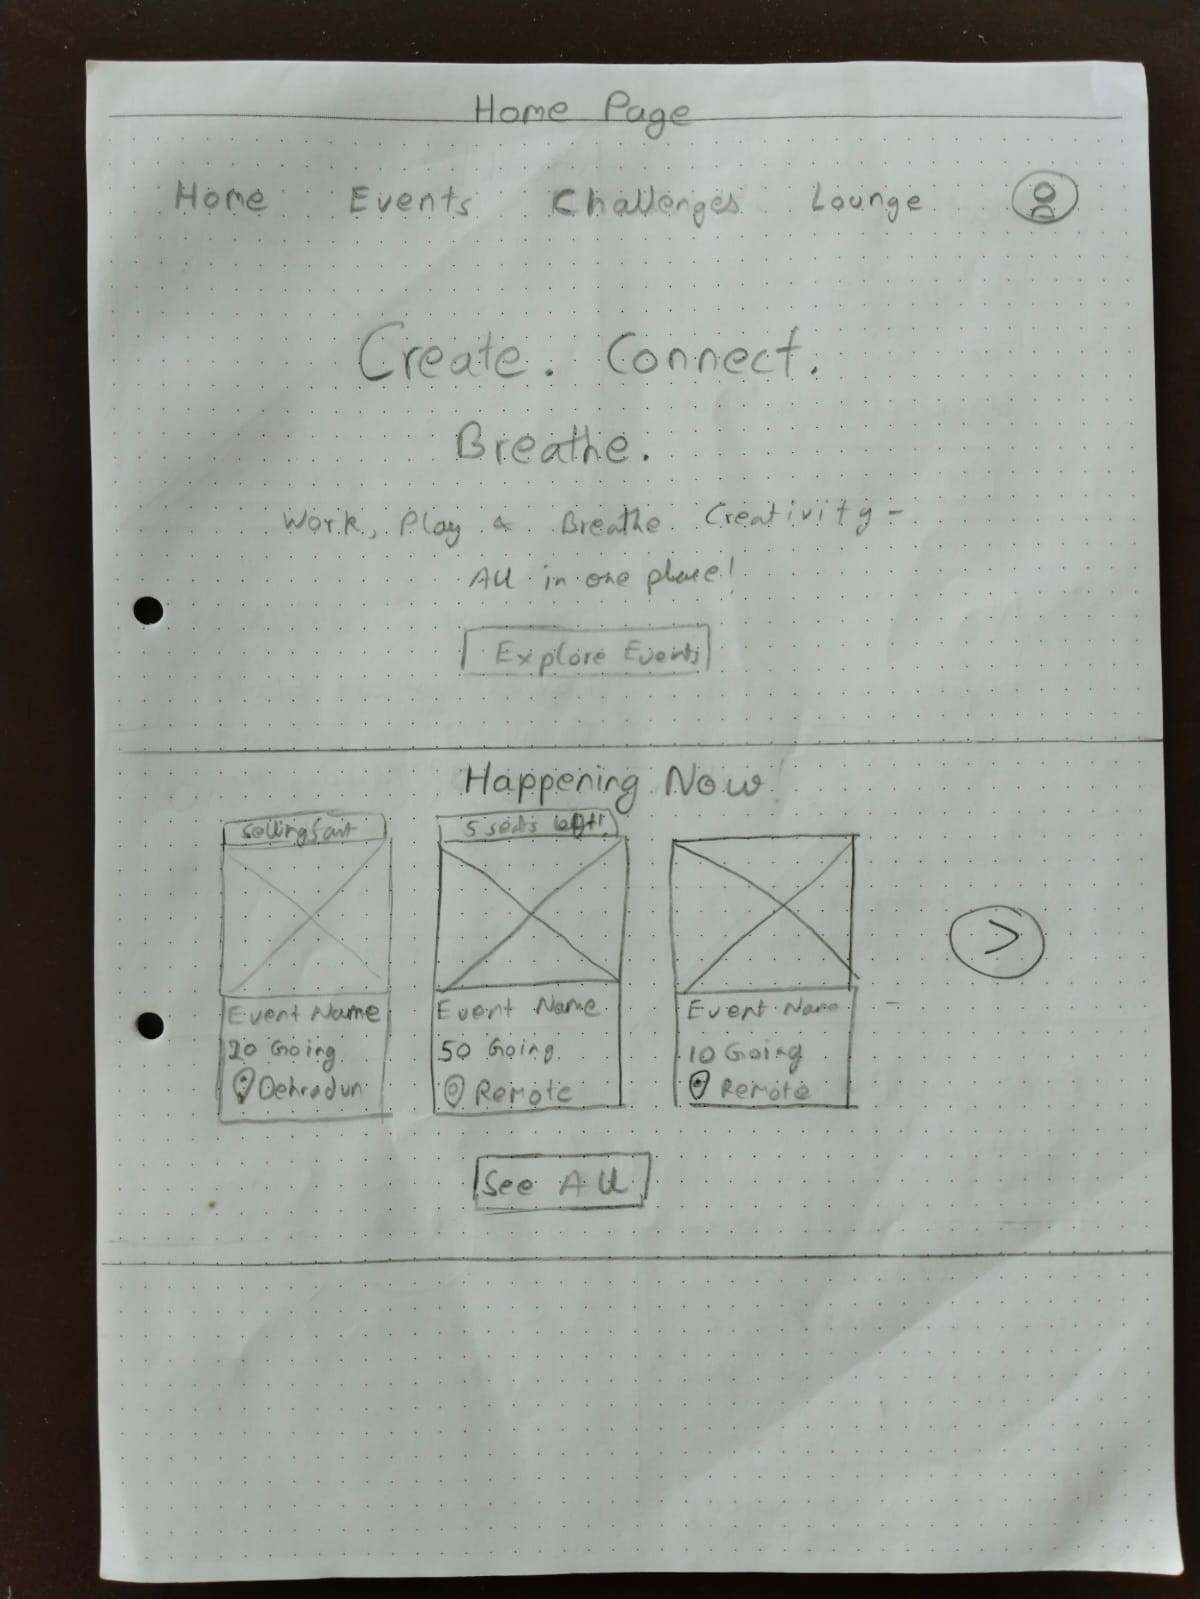 Home Page
Home Events Challenges Lounge
Create. Connect.
Breathe.
Work, Play & Breathe Creativity -
All in one place!
Explore Events
Happening Now
Selling fast 5 seats left!
Event Name Event Name Event Name
20 Going 50 Going 10 Going
Dehradun Remote Remote
See All